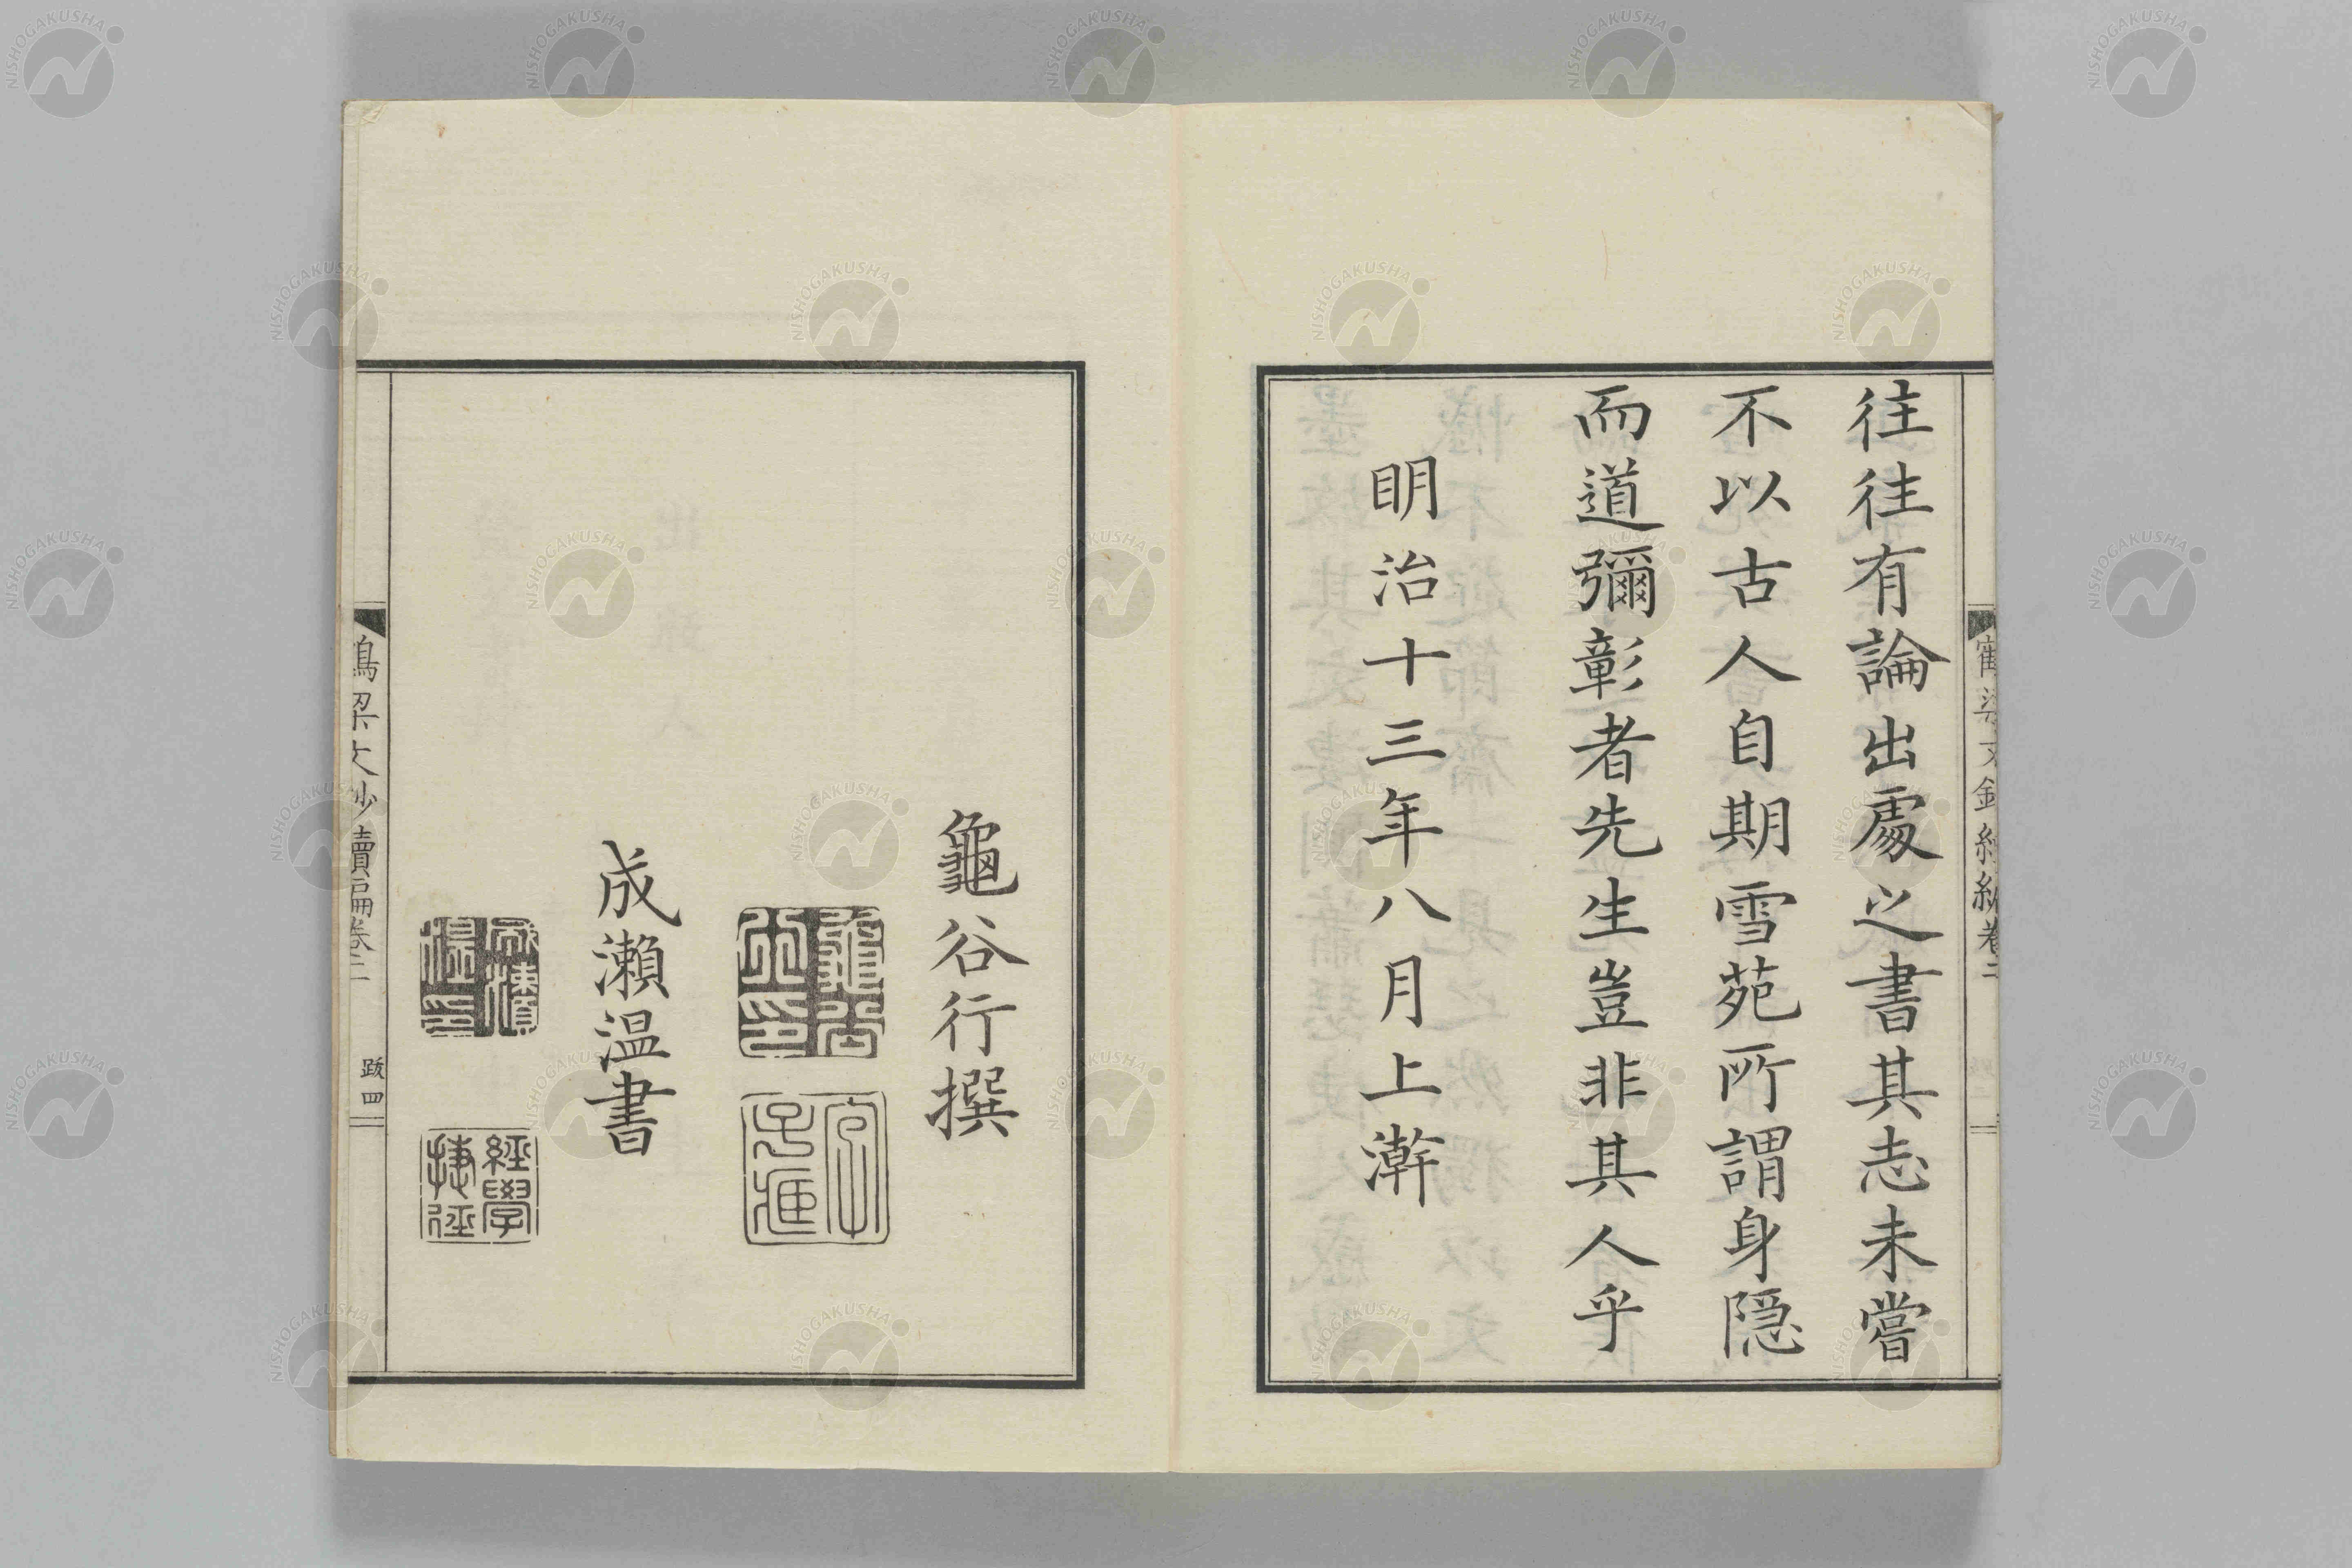 往往有論出處之書其志未嘗
不以古人自期雪苑所謂身隱
而道彌彰者先生豈非其人乎
明治十三年八月上澣
龜谷行撰
龜谷行印
字子進
成瀨温書
成瀨温印
經學捷徑
鶴梁文鈔續編卷二
跋四
NISHOGAKUSHA